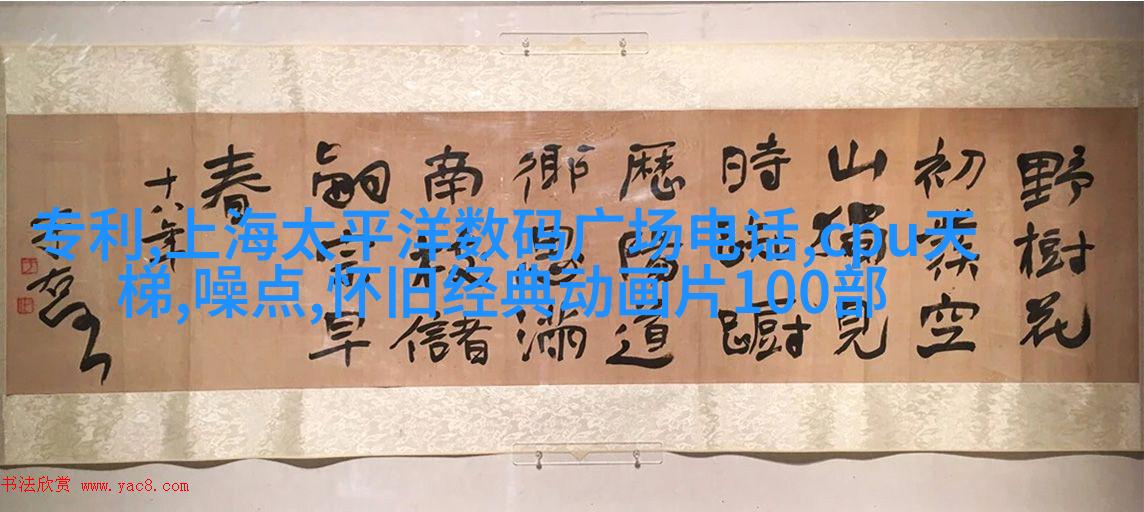 野樹花
初發空
山獨見
時踟躕
歷陽道
鄉思滿
南枝儲
嗣宗早
春
十八年
专利,上海太平洋数码广场电话,cpu天
梯,噪点,怀旧经典动画片100部
书法欣赏 www.yac8.com